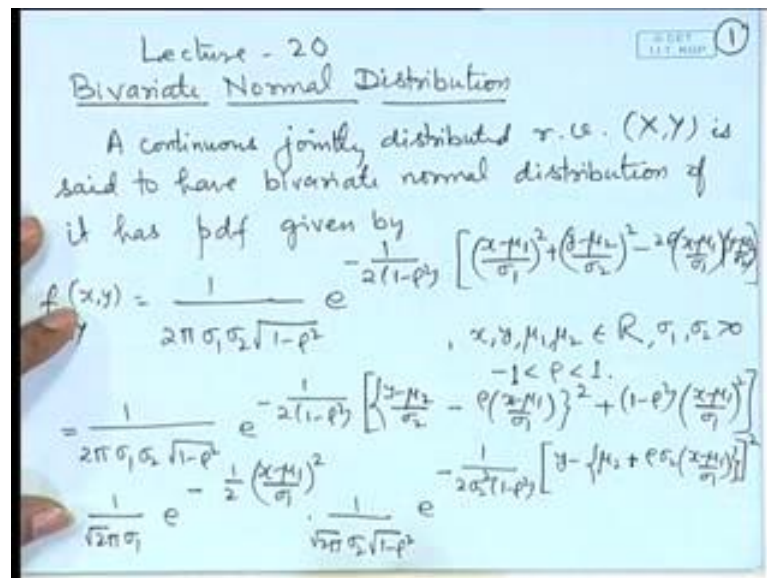 Lecture - 20
© CET
I.I.T. KGP
1
Bivariate Normal Distribution
A continuous jointly distributed r.v. (X,Y) is
said to have bivariate normal distribution if
it has pdf given by
f (x,y) = 1/(2π σ₁ σ₂ √(1-ρ²)) e^{-1/(2(1-ρ²)) [((x-μ₁)/σ₁)² + ((y-μ₂)/σ₂)² - 2ρ((x-μ₁)/σ₁)((y-μ₂)/σ₂)]}
, x, y, μ₁, μ₂ ∈ R, σ₁, σ₂ >0
-1 < ρ < 1.
= 1/(2π σ₁ σ₂ √(1-ρ²)) e^{-1/(2(1-ρ²)) [{(y-μ₂)/σ₂ - ρ((x-μ₁)/σ₁)}² + (1-ρ²)((x-μ₁)/σ₁)²]}
1/(√2π σ₁) e^{-1/2 ((x-μ₁)/σ₁)²} . 1/(√2π σ₂ √(1-ρ²)) e^{-1/(2σ₂²(1-ρ²)) [y - {μ₂ + ρσ₂((x-μ₁)/σ₁)}]²}